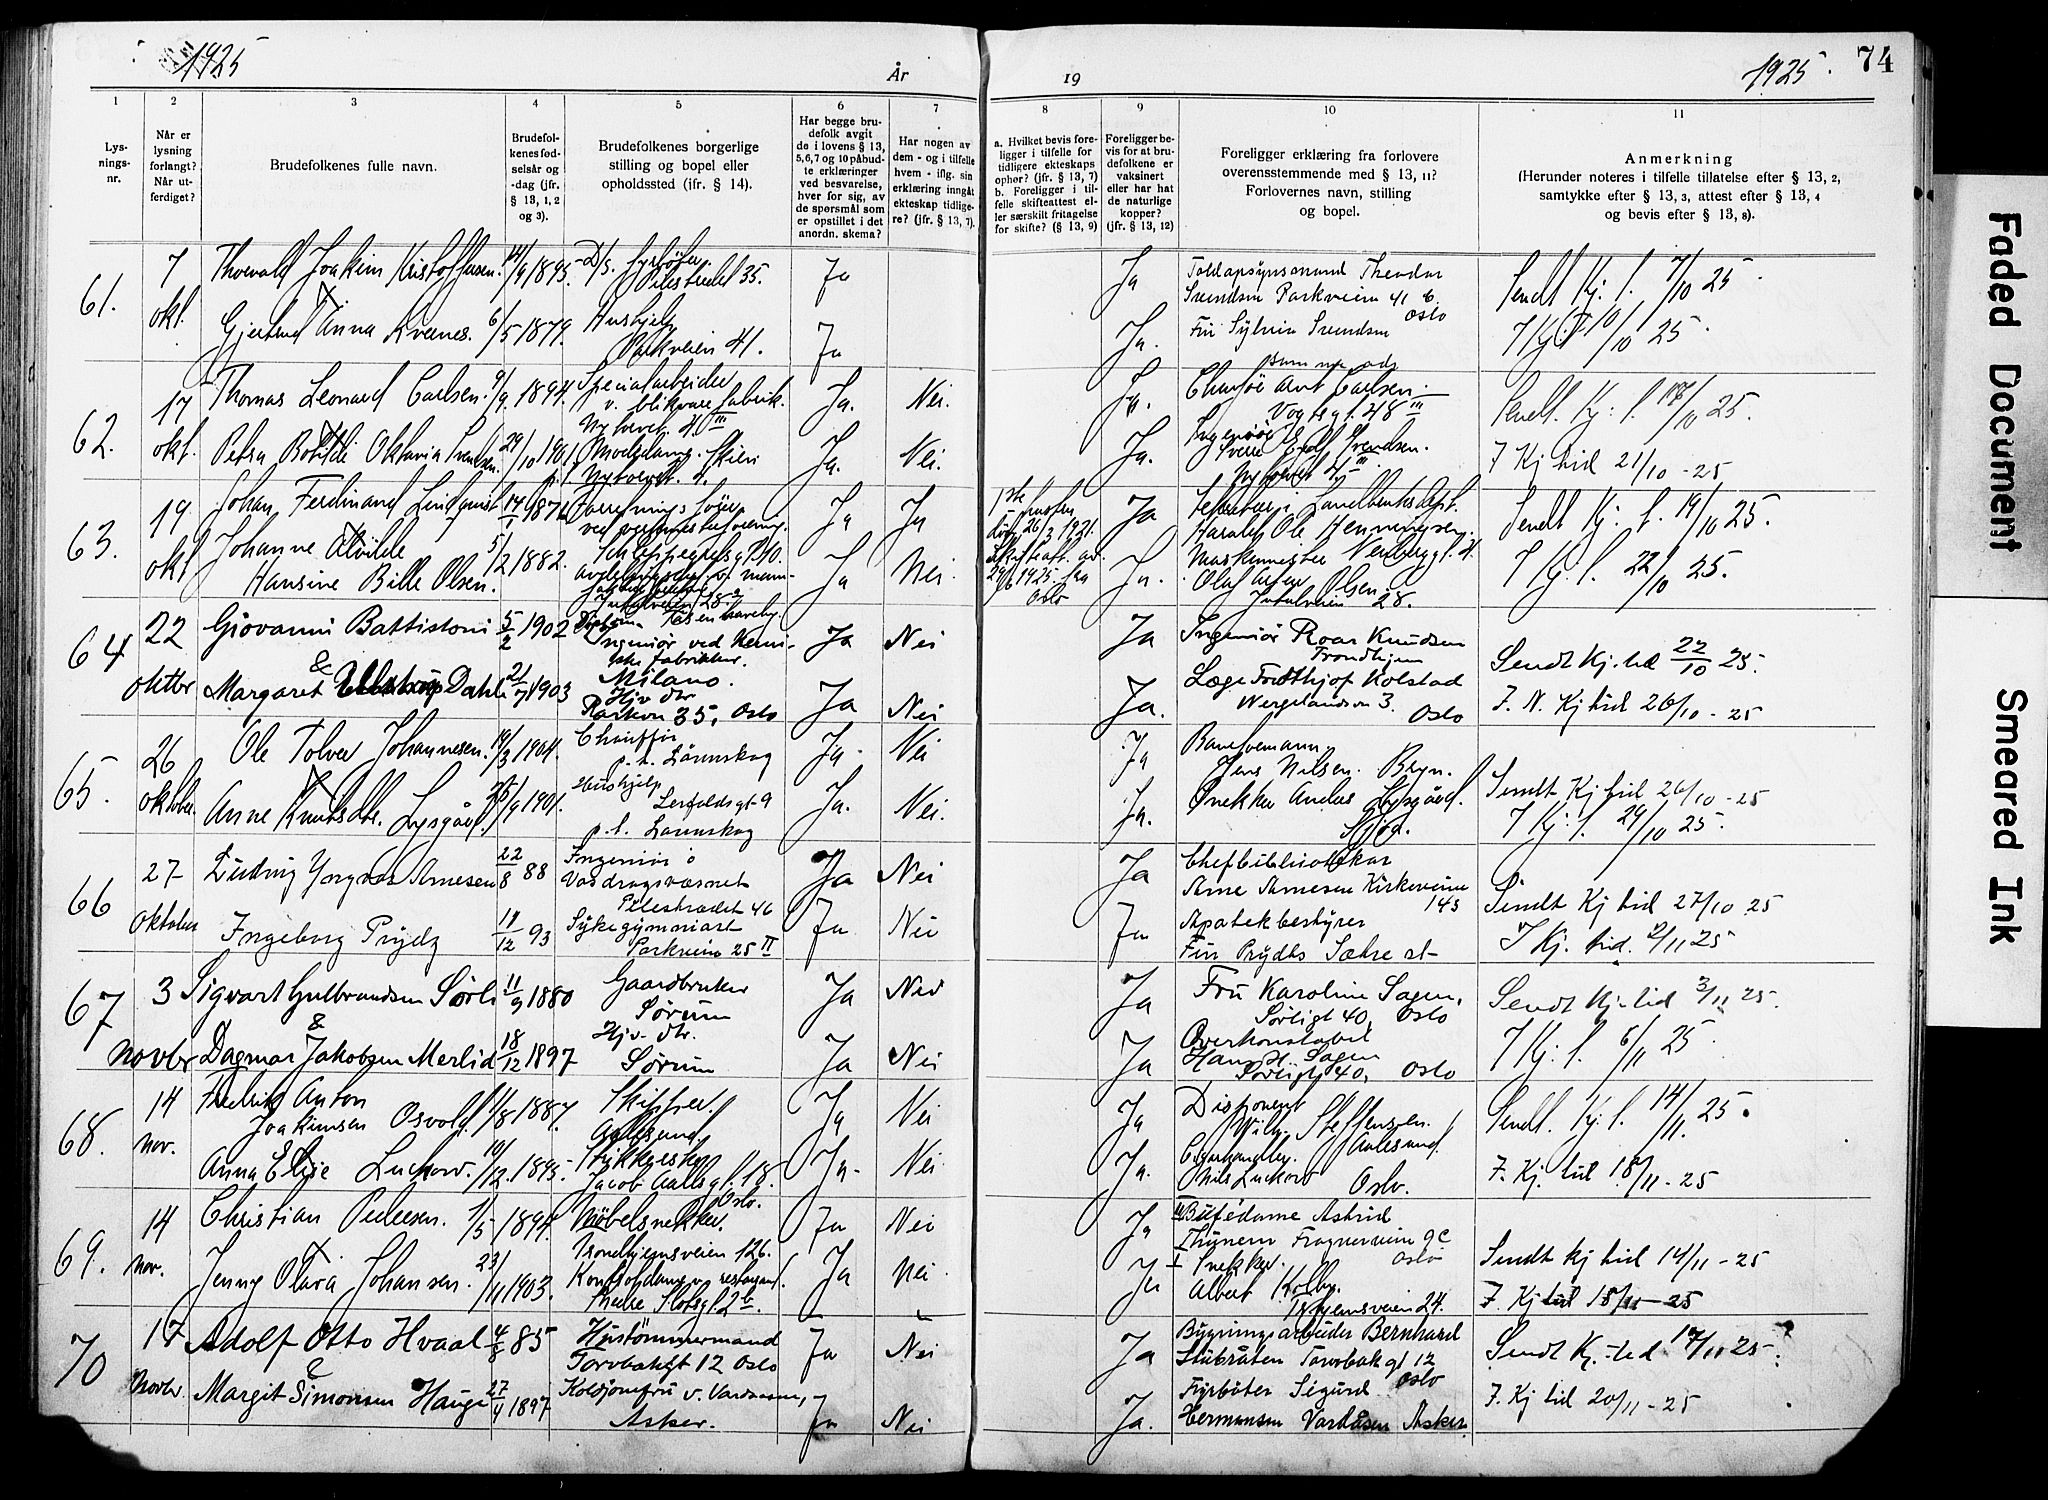 1925
År
19
1925.
74
1
2
3
4
5
6
7
8
9
10
11
Lys-
nings-
nr.
Når er
lysning
forlangt?
Når ut-
ferdiget?
Brudefolkenes fulle navn.
Brudefol-
kenes fød-
selsår og
-dag (jfr.
§ 13, 1, 2
og 3).
Brudefolkenes borgerlige
stilling og bopel eller
opholdssted (ifr. § 14).
Har begge bru-
defolk avgit
de i lovens § 13,
5,6,7 og 10 påbud-
te erklæringer
ved besvarelse,
hver for sig, av
de spørsmål som
er opstillet i det
anordn. skema?
Har nogen av
dem - og i tilfelle
hvem - iflg. sin
erklæring inngåt
ekteskap tidlige-
re? (jfr. § 13, 7).
a. Hvilket bevis fore-
ligger i tilfelle for
tidligere ekteskaps
ophør? (jfr. § 13, 7)
b. Foreligger i til-
felle skifteattest el-
ler særskilt fritagelse
for skifte? (§ 13, 9)
Foreligger be-
vis for at bru-
defolkene er
vaksinert
eller har hat
de naturlige
kopper?
(jfr. § 13, 12)
Foreligger erklæring fra forlovere
overensstemmende med § 13, 11?
Forlovernes navn, stilling
og bopel.
Anmerkning
(Herunder noteres i tilfelle tillatelse efter § 13, 2,
samtykke efter § 13, 3, attest efter § 13, 4
og bevis efter § 13, 8).
61.
7
okt.
Thorvald Joakim Kristoffersen.
14/9 1895
D/S. fyrbøter.
Pilestredet 35.
Ja
Ja
Toldopsynsmand Theodor
Svendsen Parkveien 41 b.
Oslo
Sendt Kj. t. 7/10 25
Gjertrud Anna Kvernes.
6/5 1879.
Hushjelp
Parkveien 41.
Ja
Ja.
Fru Sylvia Svendsen
samme ads
7 Kj. t. 10/10 25.
62.
17
okt.
Thomas Leonard Carlsen.
9/9 1894.
Spesialarbeider
v. blikvarefabrik.
Nytorvet 4 III
Ja.
Nei.
Ja.
Chaufør Arnt Carlsen.
Vogtsgt. 48 III
Sendt. Kj. t. 17/10 25.
Petra Bothilde Oktavia Svendsen.
29/10 1901
Modedame. Skien
Nytorvet. 4.
Ja.
Nei.
Ja.
Ingeniør
Sverre Svendsen.
Nytorvet 4 III.
7 Kj tid 21/10 - 25
63.
19
okt
Johan Ferdinand Lindqvist
14/1 1871
Ja
Ja
Ja
Harald Ole Henningsen.
Sendt Kj. t. 19/10 25.
Johanne Alvilde
Hansine Bille Olsen.
5/2 1882.
Ja
Nei.
Oslo
Ja.
Maskinmester
Olaf Olsen
Jutulveien 28.
7 Kj. t. 22/10 25.
64
22
oktbr
Giovanni Battistoni
5/2 1902
Ingeniør ved Kemi-
ske fabrikker.
Milano.
Ja
Nei
Ja
Ingeniør Roar Knudsen
Trondhjem
Sendt Kj. tid 22/10 25.
&
Margaret Dahl
21/7 1903
Hjv dtr
Parkvn 35, Oslo
Ja
Nei
Ja.
Læge Fridthjof Kolstad
Wergelandsvn 3.
Oslo
7. N. Kj tid 26/10 - 25
65.
26
oktober.
Ole Tolver Johannesen.
19/3 1904.
Chauffør
p. t. Lørenskog
Ja.
Nei
Ja
Banevemann.
Jens Nilsen. Bryn.
Sendt Kj tid 26/10 - 25
Anne Knutsdtr. Lysgård.
Hushjelp
p. t. Lørenskog
Ja.
Nei.
Ja.
Snekker Anders Lysgård.
7 Kj. t. 29/10 25.
66
27
oktober
Ludvig Yngvar Arnesen
22/8 88
Ingeniør i
Vasdragsvæsnet
Pilestrædet 46
Ja
Nei
Ja
Chefbibliotekar
Arne Arnesen Kirkeveien
143
Sendt Kj tid 27/10 25
Ingeborg Prydz
11/12 93
Sykegymnast
Parkveien 25 II
Ja
Nei
Ja
Apotekbestyrer
Fru Prydz Sætre st
7 Kj. tid. 2/11 25
67
3
novbr
Sigvart Gulbrandsen Sørli
11/9 1880
Gaardbruker
Sørum
Ja
Nei
Ja
Fru Karoline Sagen,
Sørligt 40, Oslo
Sendt Kj. tid 3/11 25.
&
Dagmar Jakobsen Merlid
18/12 1897
Hjv. dtr.
Sørum
Ja
Nei
Ja
Overkonstabel
Hans H. Sagen
Sørligt 40, Oslo
7 Kj. t. 6/11 25
68.
14
nov.
Fredrik Anton
Joakimsen Osvold.
1/8 1887.
Skipper.
Aalesund.
Ja
Nei
Ja
Disponent
Wilh. Steffensen.
Aalesund.
Sendt. Kj. t. 14/11. 25.
Anna Elise Luckow.
10/12. 1895.
Strikkerske
Jacob Aallsgt. 18.
Oslo.
Ja.
Nei
Ja.
Cigarhandler.
Nils Luckow
Oslo.
7. Kj. tid 18/11 - 25
69.
14
nov.
Christian Pedersen.
1/5 1894.
Møbelsnekker.
Trondhjemsveien 126.
Ja
Nei
Ja
Bufédame Astrid
Thunem Frognerveien 9c
Oslo
Sendt kj tid 14/11 - 25
Jenny Olava Johansen.
23/11 1903.
Kontordame v. restaurant.
Nedre Slotsgt. 2b.
Ja
Nei
Ja
Snekker.
Albert Kolby.
Trhjemsveien 24.
7. Kj tid 18/11 - 25
70
17
novbr.
Adolf Otto Hvaal
4/8 85
Hustømmermand
Torvbakgt 12 Oslo
Ja
Nei
Ja
Bygningsarbeider Bernhard
Stubråten Torvbakgt 12
Oslo
Sendt Kj. tid 17/11 25.
&
Margit Simonsen Hauge
27/4 1897
Koldjomfru v. Vardaasen,
Asker.
Ja
Nei
Ja.
Fyrbøter Sigurd
Hermansen Vardåsen Asker.
7. Kj tid 20/11 - 25
Faded Document
Smeared Ink